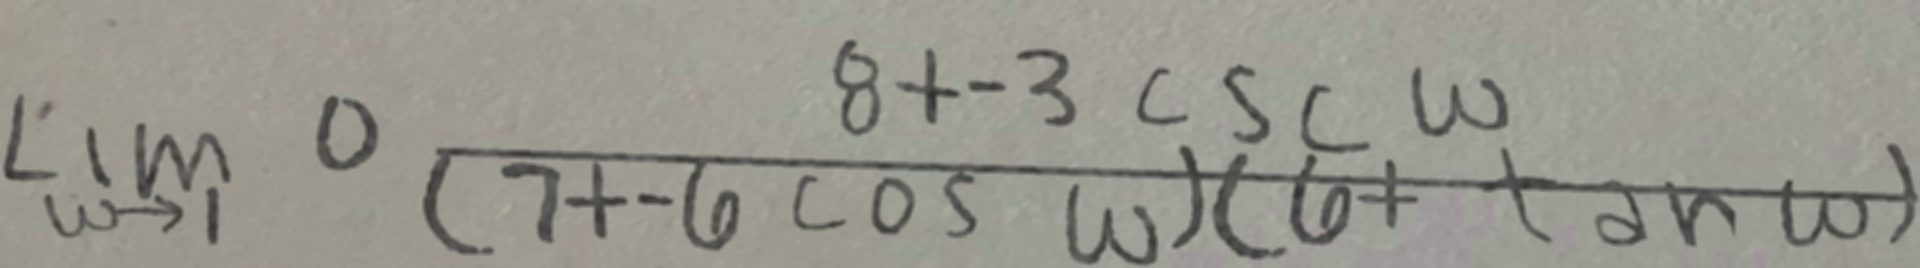 Lim w→1 0 (8+-3 csc w)/((7+-6 cos w)(6+ tan w))